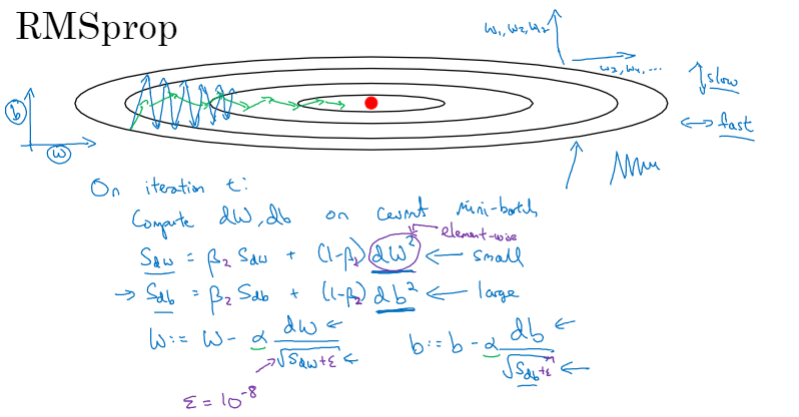 RMSprop
w₁, w₂, w₂
w₃, w₄, ...
↕ slow
b
↔ fast
w
On iteration t:
Compute dW, db on current mini-batch
element-wise
S_dw = β₂ S_dw + (1-β₂) dW² ← small
→ S_db = β₂ S_db + (1-β₂) db² ← large
W := W - α dW/√(S_dw+ε) ← b := b - α db/√(S_db+ε) ←
ε = 10⁻⁸